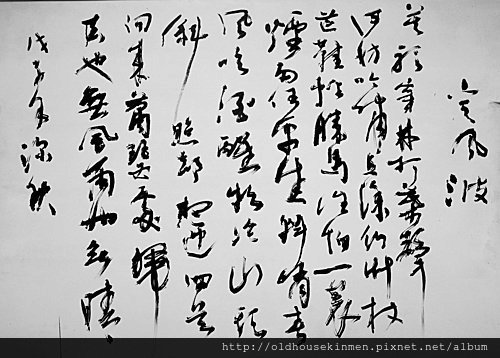 定風波
莫聽穿林打葉聲
何妨吟嘯且徐行竹杖
芒鞋輕勝馬誰怕一蓑
煙雨任平生料峭春
風吹酒醒微冷山頭
斜照却相迎回首
向來蕭瑟處歸
去也無風雨也無晴
戊子年深秋
http://oldhousekinmen.pixnet.net/album